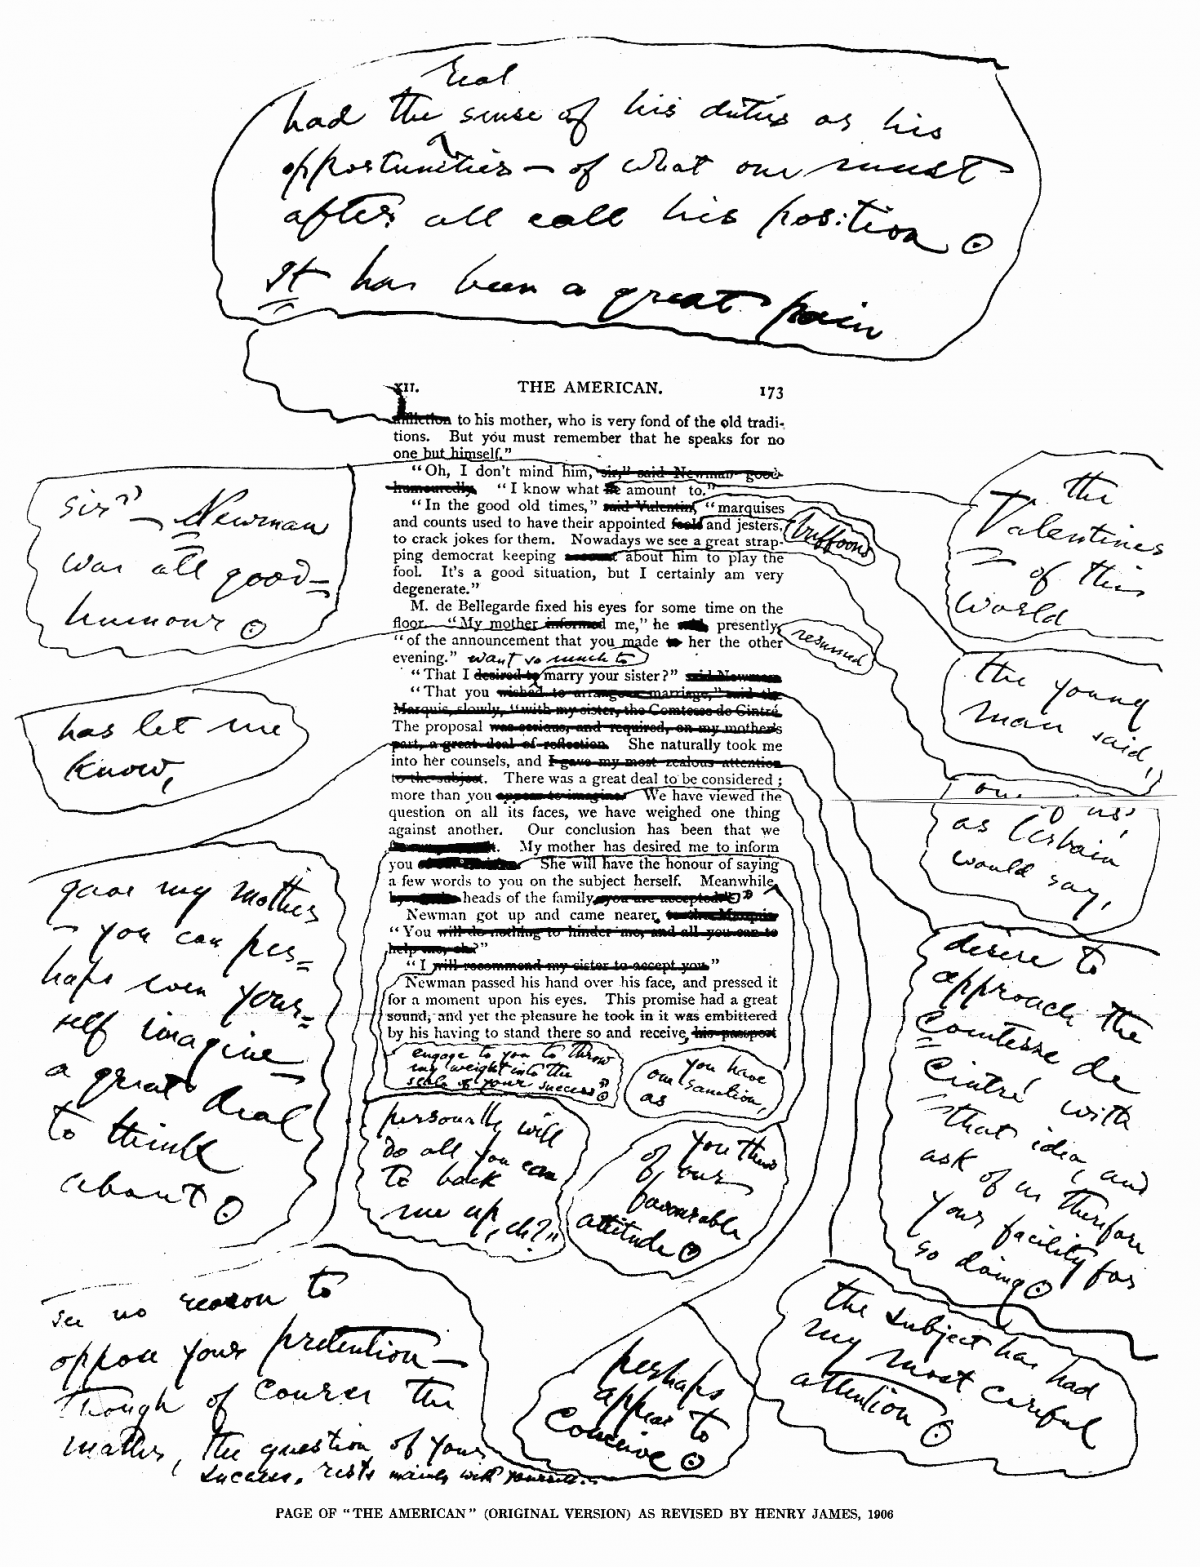 real
had the sense of his duties as his
opportunities — of what one must
after all call his position.
It has been a great pain
XII. THE AMERICAN. 173
affliction to his mother, who is very fond of the old tradi-
tions. But you must remember that he speaks for no
one but himself."
"Oh, I don't mind him, sir," said Newman good-
humouredly. "I know what he amount to."
"In the good old times," said Valentin, "marquises
and counts used to have their appointed fools and jesters,
to crack jokes for them. Nowadays we see a great strap-
ping democrat keeping about him to play the
fool. It's a good situation, but I certainly am very
degenerate."
M. de Bellegarde fixed his eyes for some time on the
floor. "My mother informed me," he said presently,
"of the announcement that you made to her the other
evening." want so much to
"That I desired to marry your sister?" said Newman
"That you wished to arrange a marriage," said the
Marquis, slowly, "with my sister, the Comtesse de Cintré.
The proposal was serious, and required, on my mother's
part, a great deal of reflection. She naturally took me
into her counsels, and I gave my most zealous attention
to the subject. There was a great deal to be considered;
more than you appear to imagine. We have viewed the
question on all its faces, we have weighed one thing
against another. Our conclusion has been that we
My mother has desired me to inform
you She will have the honour of saying
a few words to you on the subject herself. Meanwhile,
heads of the family, you are accepted."
Newman got up and came nearer to the Marquis
"You will do nothing to hinder me, and all you can to
help me, eh?"
"I will recommend my sister to accept you."
Newman passed his hand over his face, and pressed it
for a moment upon his eyes. This promise had a great
sound, and yet the pleasure he took in it was embittered
by his having to stand there so and receive his passport
sir" — Newman
was all good-
humour.
has let me
know,
gave my mother
— you can per-
haps even your-
self imagine —
a great deal
to think
about.
see no reason to
oppose your pretention —
though of course the
matter, the question of your
success, rests mainly with yourself.
buffoons
resumed
the
Valentines
of this
world
the young
man said,
as
would say,
desire to
approach the
Comtesse de
Cintré with
that idea, and
ask of us therefore
your facility for
so doing.
engage to you to throw
my weight into the
scale of your success."
you have
our sanction,
as
personally will
do all you can
to back
me up, eh?"
you thus
of our
favourable
attitude.
perhaps
appear to
conceive.
the subject has had
my most careful
attention.
PAGE OF "THE AMERICAN" (ORIGINAL VERSION) AS REVISED BY HENRY JAMES, 1906